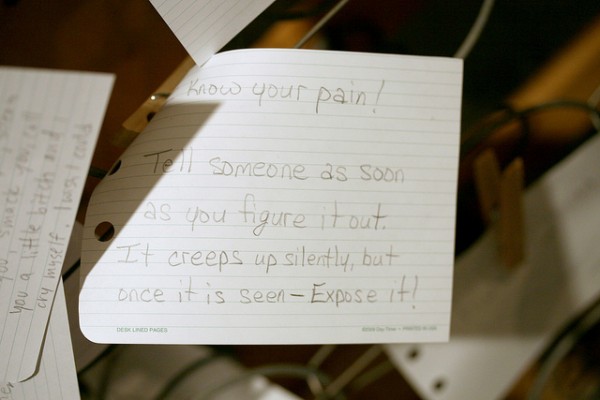 Know your pain!
Tell someone as soon
as you figure it out.
It creeps up silently, but
once it is seen - Expose it!
DESK LINED PAGES
you a little bitch and
cry myself. I just could